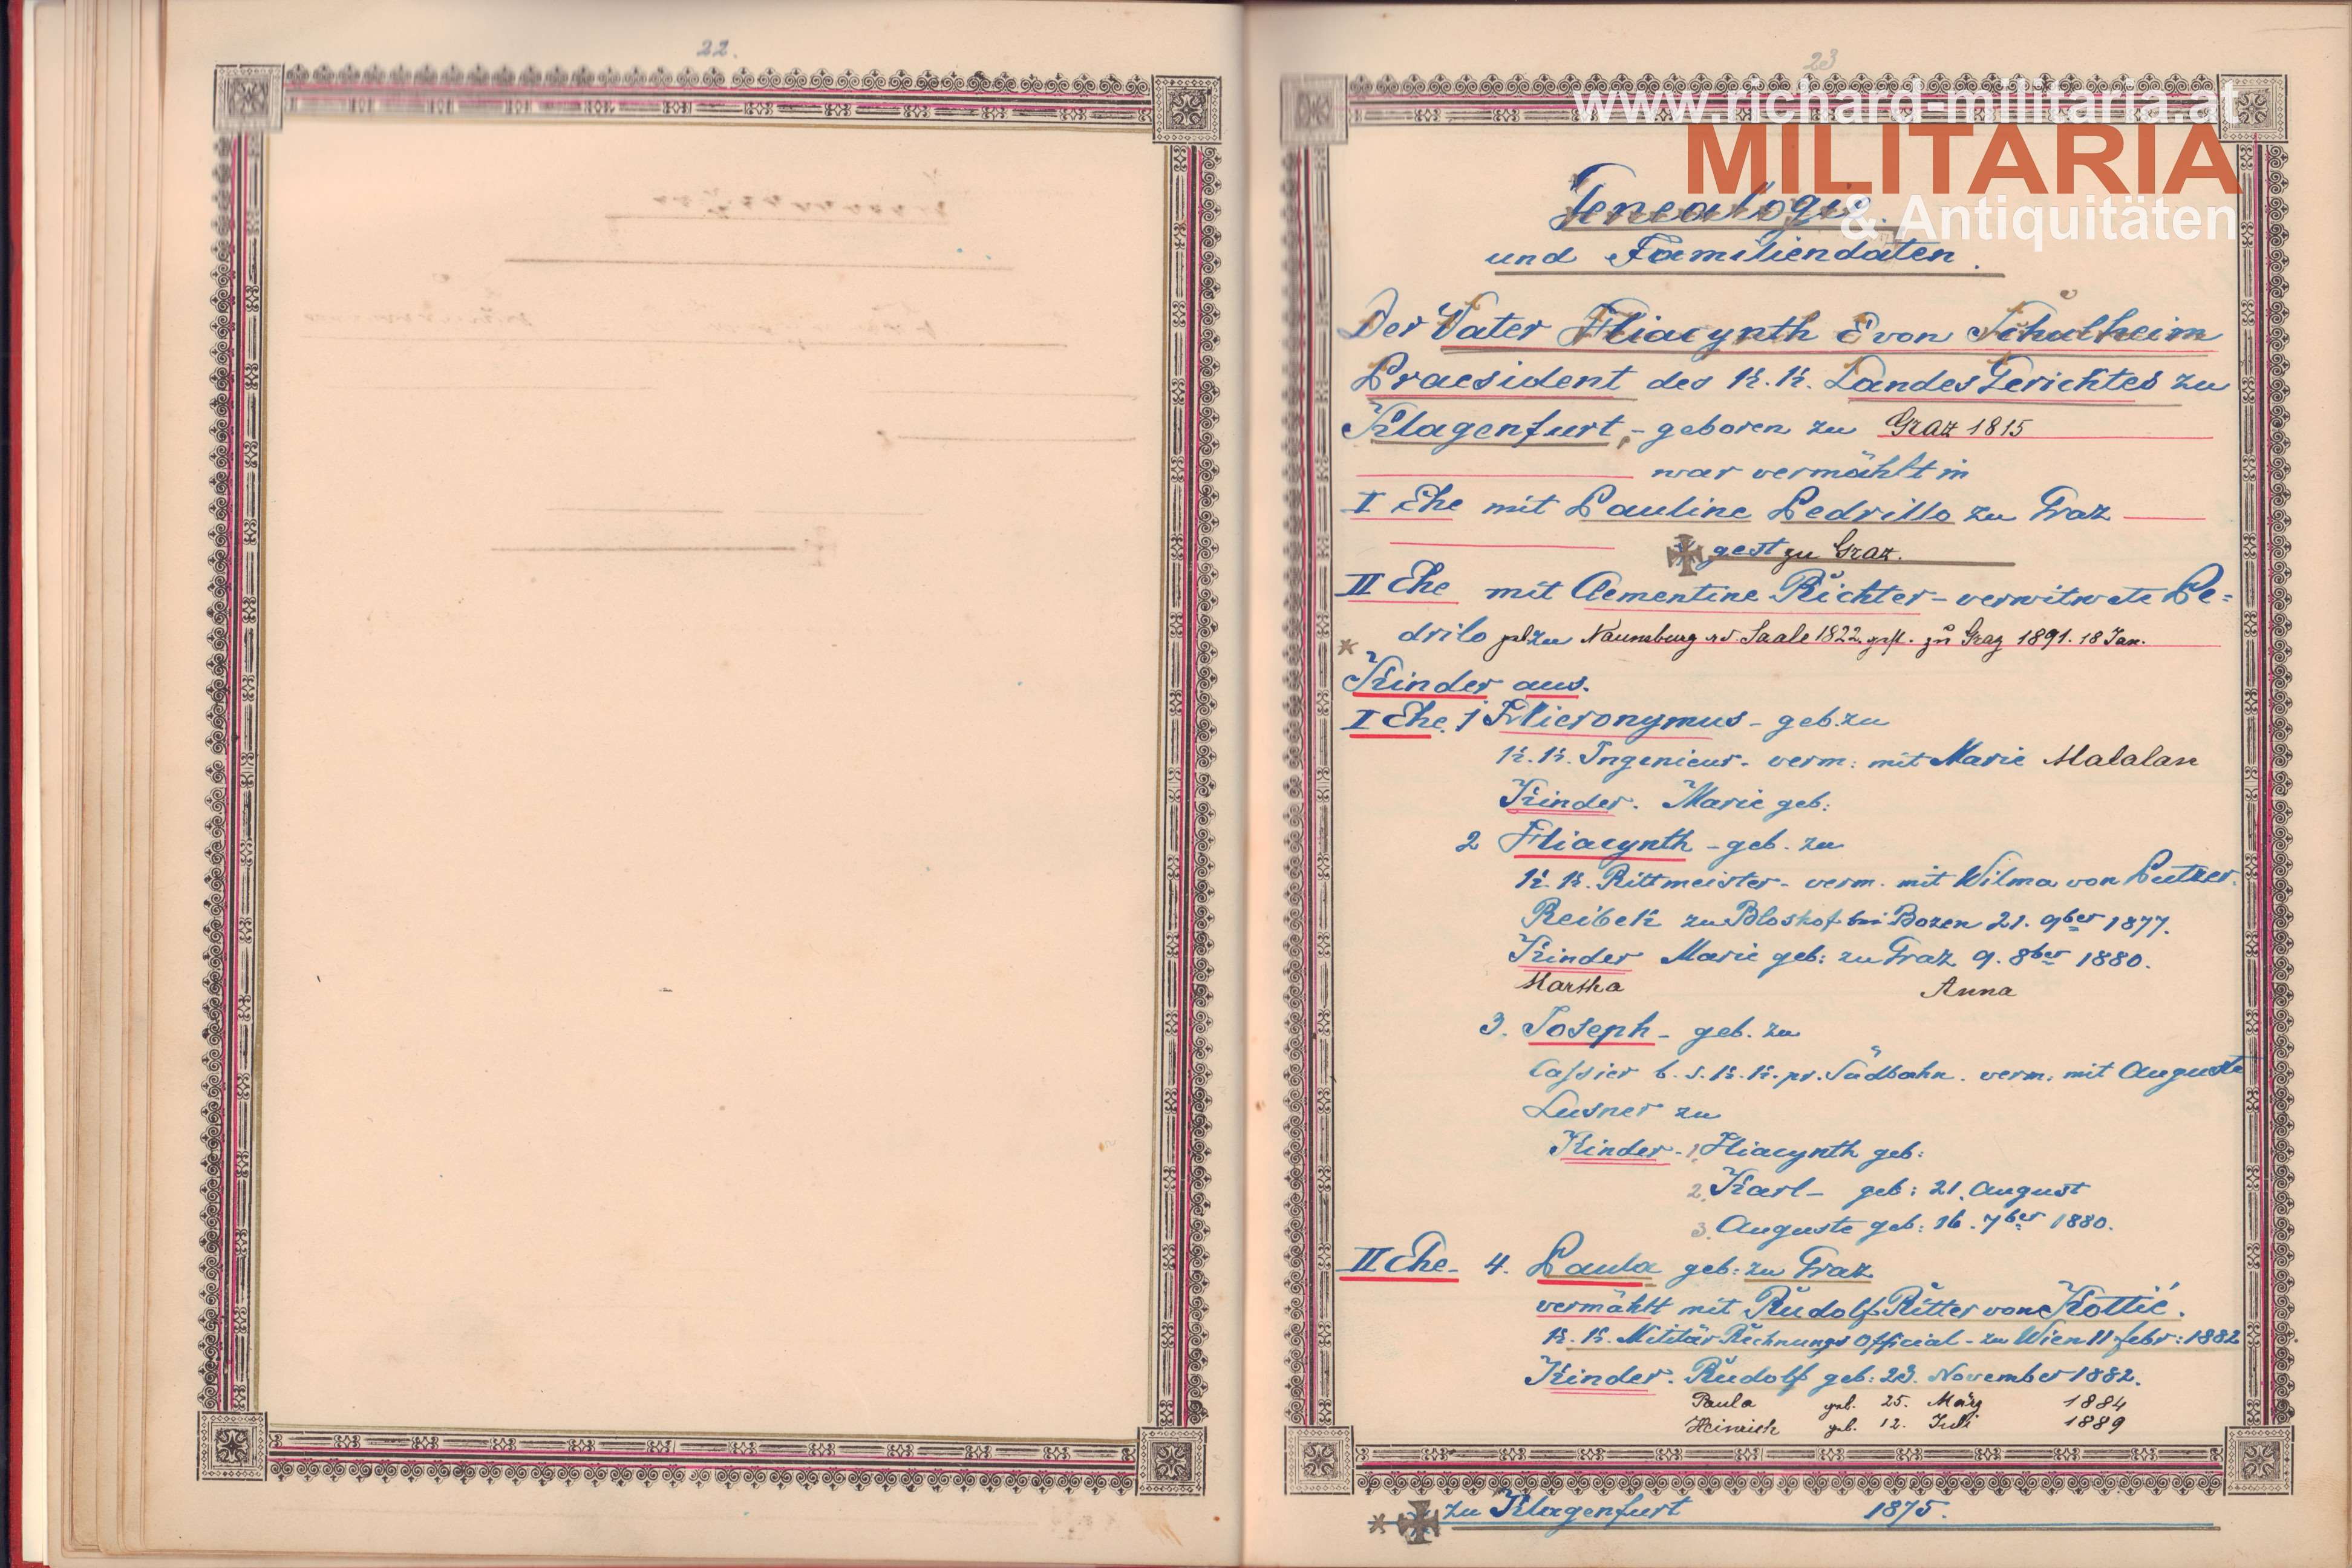 22.
23
www.richard-militaria.at
MILITARIA
& Antiquitäten
Genealogie.
und Familiendaten.
Der Vater Hiacynth E von Schulheim
Praesident des k. k. Landes Gerichtes zu
Klagenfurt, - geboren zu Graz 1815
war vermählt in
I Ehe mit Pauline Pedrillo zu Graz
gest zu Graz.
II Ehe mit Clementine Richter - verwitwete Pe=
* drilo geb zu Naumburg a. d. Saale 1822 gest. zu Graz 1891. 18 Jan.
Kinder aus.
I Ehe. 1 Hieronymus - geb. zu
k. k. Ingenieur. verm: mit Marie Malalan
Kinder. Marie geb:
2 Hiacynth - geb. zu
k. k. Rittmeister - verm. mit Wilma von Putzer.
Reibek zu Bloshof bei Bozen 21. 9ber 1877.
Kinder Marie geb: zu Graz 9. 8ber 1880.
Martha Anna
3. Joseph - geb. zu
Cassier b. d. k. k. pr. Südbahn. verm. mit Auguste
Lusner zu
Kinder - 1. Hiacynth geb:
2. Karl - geb: 21. August
3. Auguste geb: 16. 7ber 1880.
II Ehe - 4. Paula geb: zu Graz
vermählt mit Rudolf Ritter von Kottié.
k. k. Militär Rechnungs Official - zu Wien 11 febr: 1882
Kinder. Rudolf geb: 23. November 1882.
Paula geb. 25. März 1884
Heinrich geb. 12. Juli 1889
* zu Klagenfurt 1875.